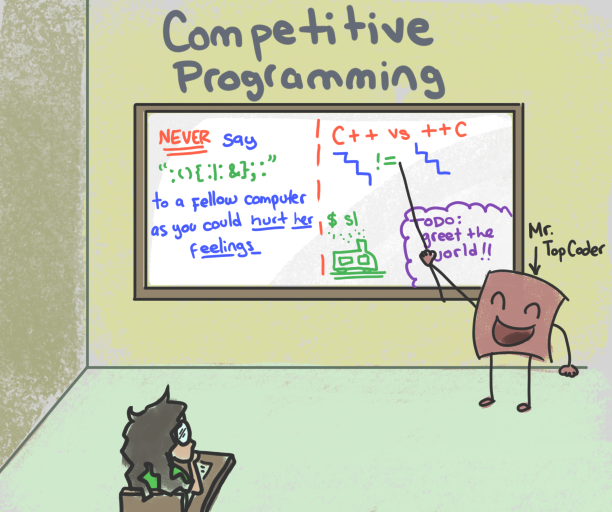 Competitive
Programming
NEVER say
":(){ :|: &};:"
to a fellow computer
as you could hurt her
feelings
C++ vs ++C
!=
$ sl
TODO:
greet the
world!!
Mr.
TopCoder